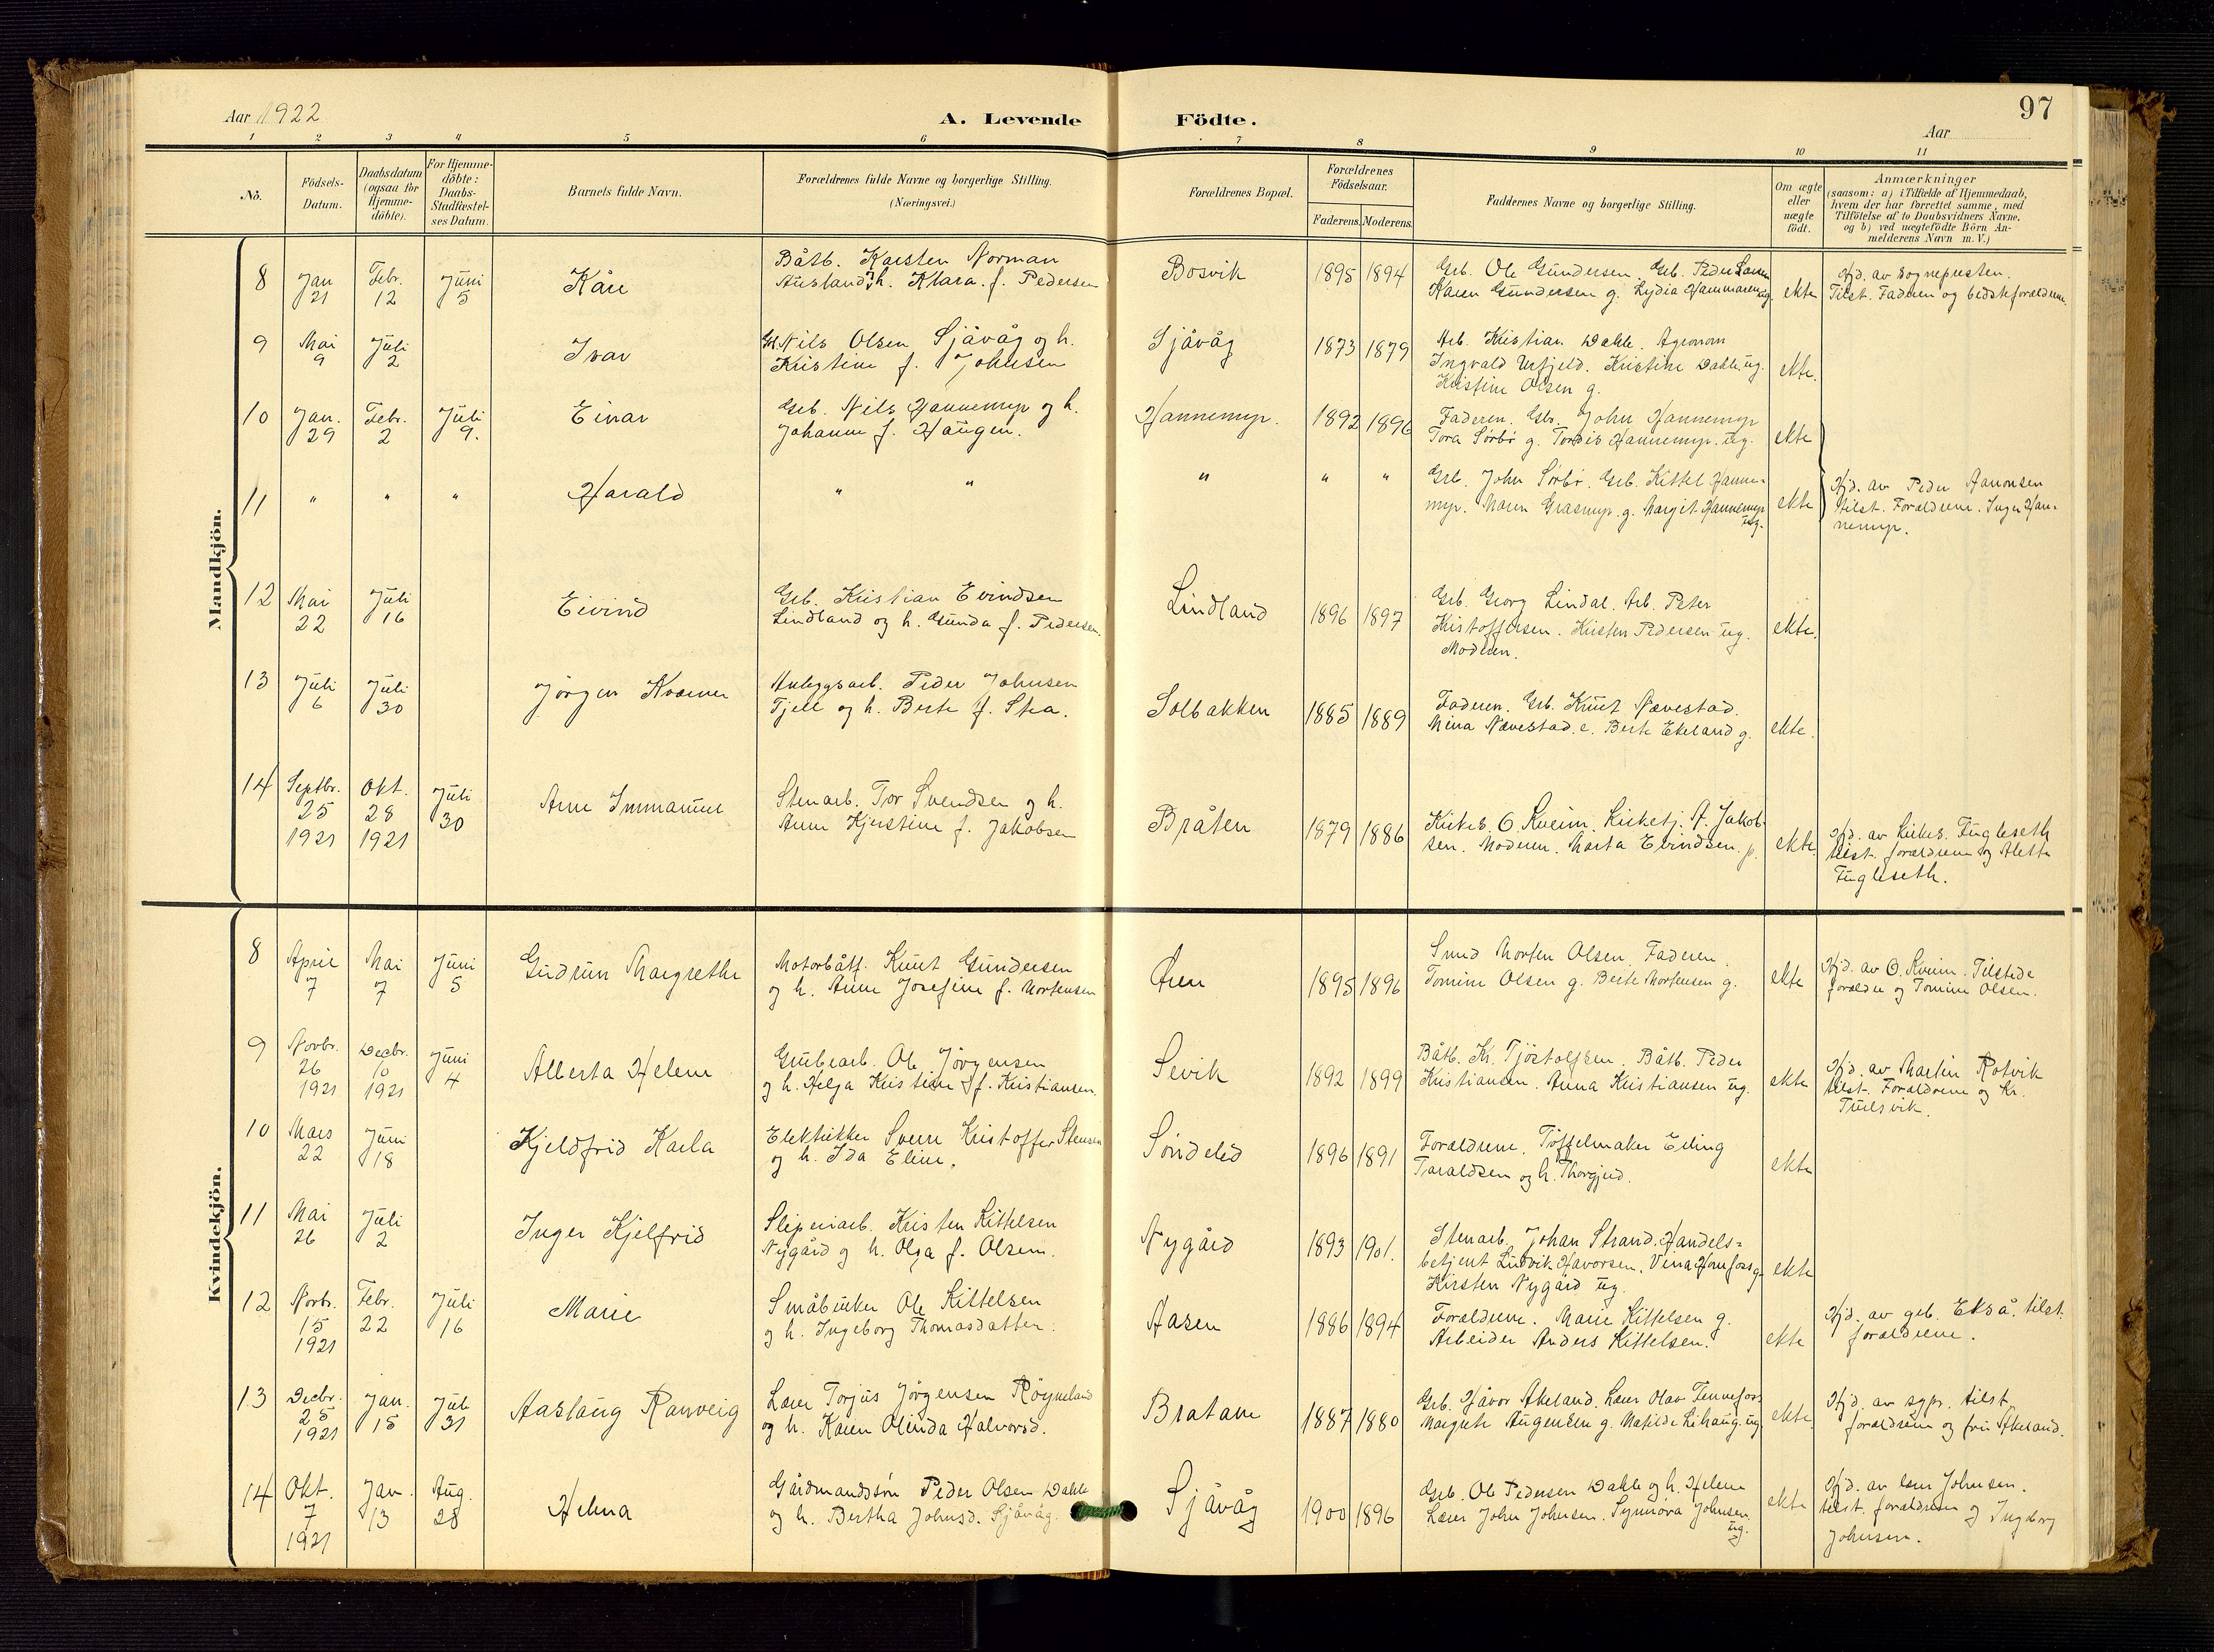 Aar 1922
A. Levende Födte.
97
Aar
1 2 3 4 5 6 7 8 9 10 11
No.
Födsels-
Datum.
Daabsdatum
(ogsaa for
Hjemme-
döbte).
For Hjemme-
döbte:
Daabs-
Stadfæstel-
ses Datum.
Barnets fulde Navn.
Forældrenes fulde Navne og borgerlige Stilling.
(Næringsvei.)
Forældrenes Bopæl.
Forældrenes
Födselsaar.
Faderens. Moderens.
Faddernes Navne og borgerlige Stilling.
Om ægte
eller
uægte
födt.
Anmærkninger
(saasom: a) i Tilfælde af Hjemmedaab,
hvem der har forrettet samme, med
Tilföielse af to Daabsvidners Navne.
og b) ved uægtefödte Börn An-
melderens Navn m. V.)
Mandkjön.
8 Jan 21 Febr. 12 Juni 5 Kåre
Båtb. Karsten Norman
Ausland og h. Klara f. Pedersen
Bosvik 1895 1894
Grb. Ole Gundersen. Grb. Peder Larsen
Karen Gundersen g. Lydia Hammaren ug.
ekte
Hjd. av Sognepresten.
Tilst. Faderen og bedsteforældrene.
9 Mai 9 Juli 2 Ivar
Grb. Nils Olsen Sjåvåg og h.
Kristine f. Johnsen
Sjåvåg 1873 1879
Arb. Kristian Dahle. Agronom
Ingvald Urfjeld. Kristine Dahle ug.
Kristine Olsen g.
ekte.
10 Jan. 29 Febr. 2 Juli 9. Einar
Grb. Nils Hannemyr og h.
Johanne f. Haugen.
Hannemyr. 1892 1896
Faderen. Grb. John Hannemyr
Tora Sørbø g. Tordis Hannemyr. ug.
ekte
11 " " " Harald " " " " "
Grb. John Sørbø. Grb. Kittel Hanne-
myr. Maren Grasmyr. g. Margit Hannemyr
ug.
ekte
Hjd. av Peder Aanonsen
tilst. Forældrene. Inger Han-
nemyr.
12 Mai 22 Juli 16 Eivind
Grb. Kristian Evindsen
Lindland og h. Gunda f. Pedersen.
Lindland 1896 1897
Grb. Georg Lindal. Arb. Peter
Kristoffersen. Kirsten Pedersen ug.
Moderen.
ekte.
13 Juli 6 Juli 30 Jørgen Kværner
Anlegsarb. Peder Johnsen
Fjell og h. Berte f. Stra.
Solbakken 1885 1889
Faderen. Grb. Knut Nævestad.
Mina Nævestad. e. Berte Ekeland g.
ekte.
14 Septbr. 25 1921 Okt. 28 1921 Juli 30 Arne Immanuel
Stenarb. Tor Svendsen og h.
Anne Kjerstine f. Jakobsen
Bråten 1879 1886
Kirkes. O. Kveim. Kirketj. A. Jakob-
sen. Moderen. Marta Evindsen. p.
ekte.
Hjd. av Kirkes. Fugleseth
tilst. forældrene og Alette
Fugleseth.
Kvindekjön.
8 April 7 Mai 7 Juni 5 Gudrun Margrethe
Motorbåtf. Knut Gundersen
og h. Anne Josefine f. Mortensen
Øren 1895 1896
Smed Morten Olsen. Faderen.
Tomine Olsen g. Berte Mortensen g.
ekte
Hjd. av O. Kveim. Tilstede
forældre og Tomine Olsen.
9 Novbr. 26 1921 Decbr. 10 1921 Juni 4 Alberta Helene
Grubearb. Ole Jörgensen
og h. Helga Kristine f. Kristiansen.
Sevik 1892 1899
Båtb. Kr. Tjöstolfsen. Båtb. Peder
Kristiansen. Anna Kristiansen ug.
ekte
Hjd. av Martin Rotvik
tilst. Forældrene og Kr.
10 Mars 22 Juni 18 Kjeldfrid Karla
Elektriker Sverre Kristoffer Stensen
og h. Ida Eline.
Søndeled 1896 1891
Forældrene. Töffelmaker Erling
Taraldsen og h. Thorgjerd.
ekte
11 Mai 26 Juli 2 Inger Kjelfrid
Sliperiarb. Kristen Kittelsen
Nygård og h. Olga f. Olsen.
Nygård 1893 1901.
Stenarb. Johan Strand. Handels=
betjent Ludvik Havorsen. Vina Homfoss g.
Kirsten Nygård ug.
ekte
12 Novbr. 15 1921 Febr. 22 Juli 16 Marie
Småbruker Ole Kittelsen
og h. Ingeborg Thomasdatter.
Aasen 1886 1894
Forældrene. Marie Kittelsen g.
Arbeider Anders Kittelsen.
ekte
Hjd. av grb. Ekså. tilst.
forældrene.
13 Decbr. 25 1921 Jan. 15 Jul 31 Aaslaug Ranveig
Lærer Torjus Jörgensen Röyneland
og h. Karen Olinda Halvorsd.
Bratane 1887 1880
Grb. Håvor Akeland. Lærer Olav Tennefoss
Margrete Augensen g. Matilde Lihaug. ug
ekte.
Hjd. av sgpr. tilst.
forældrene og fru Akeland.
14 Okt. 7 1921 Jan. 13 Aug. 28 Helena
Gårdmandssøn Peder Olsen Dahle
og h. Bertha Johnsd. Sjåvåg.
Sjåvåg 1900 1896
Grb. Ole Pedersen Dahle og h. Helene
Lærer John Johnsen. Synnøva Johnsen
ug.
ekte
Hjd. av lærer Johnsen.
tilst. forældrene og Ingeborg
Johnsen.